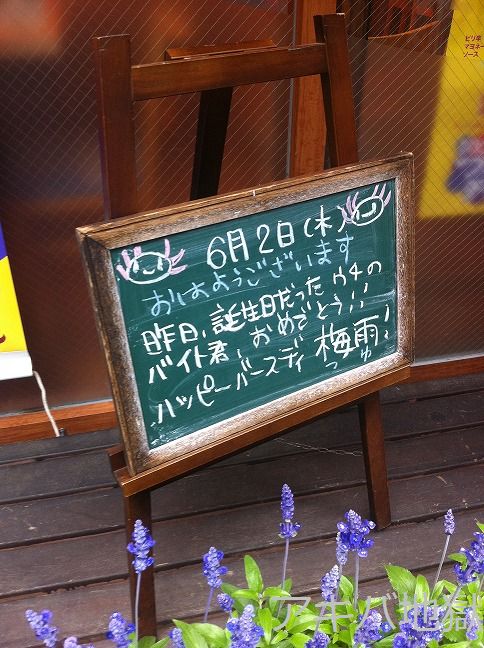 ピリ辛
マヨネー
ソース
6月2日(木)
おはようございます
昨日、誕生日だった ウチの
バイト君、おめでとう!!
ハッピーバースディ 梅雨!!
つゅ
アキバ地帝